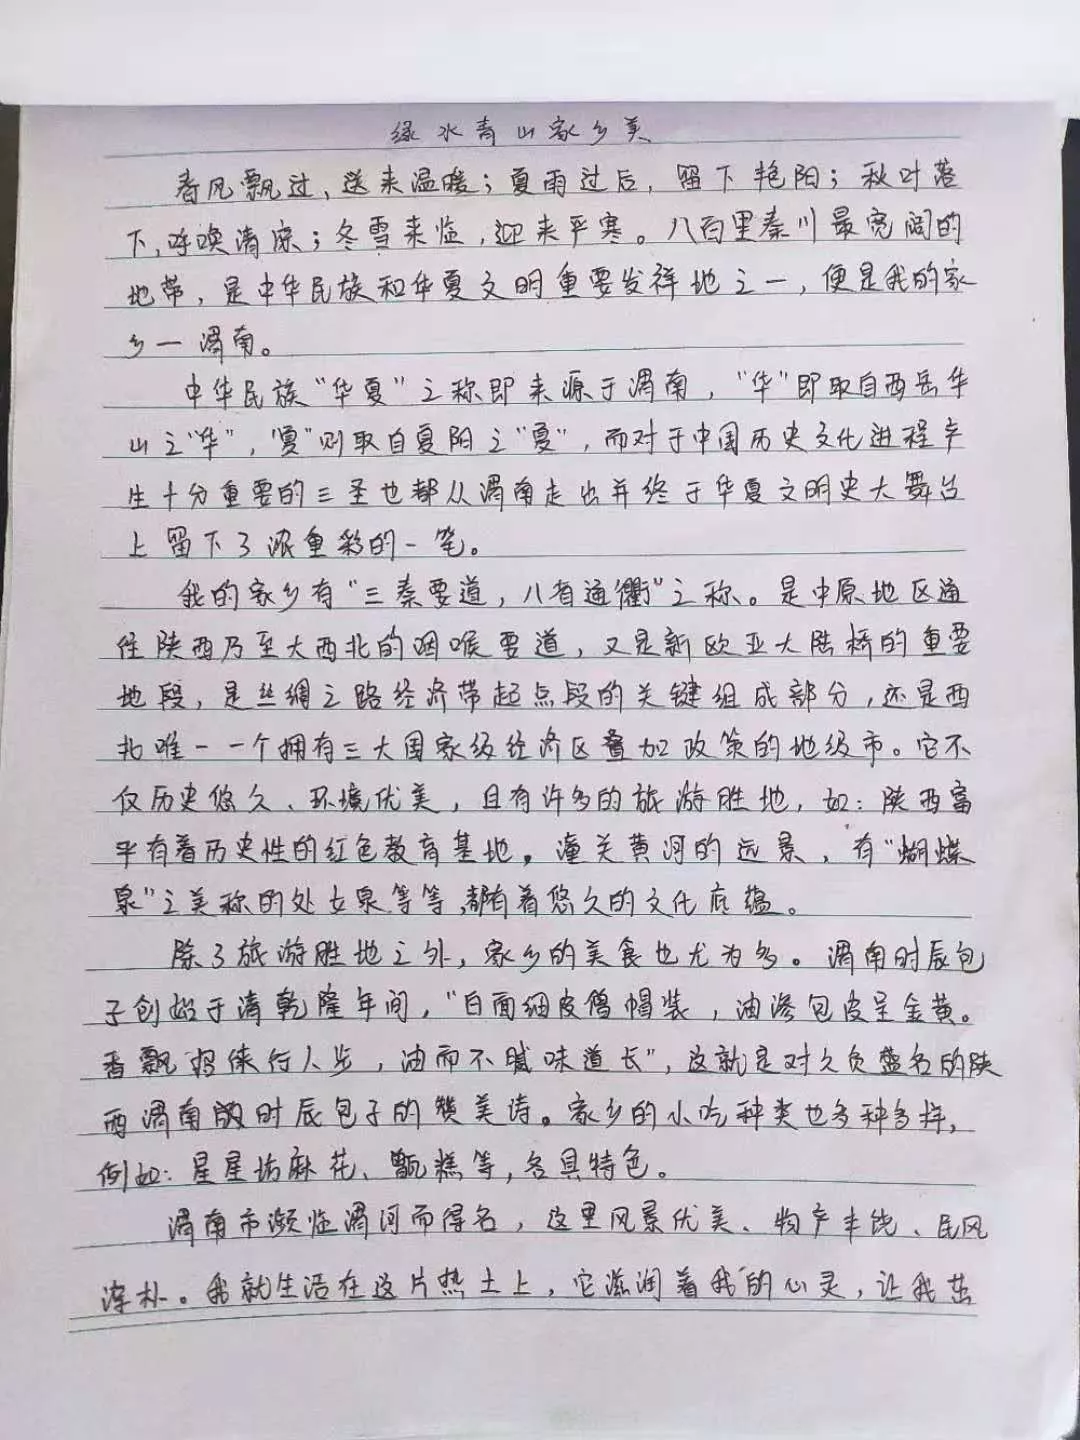 绿水青山家乡美
春风飘过，送来温暖；夏雨过后，留下艳阳；秋叶落
下，呼唤清凉；冬雪来临，迎来严寒。八百里秦川最宽阔的
地带，是中华民族和华夏文明重要发祥地之一，便是我的家
乡一渭南。
中华民族“华夏”之称即来源于渭南，“华”即取自西岳华
山之“华”，“夏”则取自夏阳之“夏”，而对于中国历史文化进程产
生十分重要的三圣也都从渭南走出并终于华夏文明史大舞台
上留下了浓重彩的一笔。
我的家乡有“三秦要道，八省通衢”之称。是中原地区通
往陕西乃至大西北的咽喉要道，又是新欧亚大陆桥的重要
地段，是丝绸之路经济带起点段的关键组成部分，还是西
北唯一一个拥有三大国家级经济区叠加政策的地级市。它不
仅历史悠久、环境优美，且有许多的旅游胜地，如：陕西富
平有着历史性的红色教育基地。潼关黄河的远景，有“蝴蝶
泉”之美称的处女泉等等，都有着悠久的文化底蕴。
除了旅游胜地之外，家乡的美食也尤为多。渭南时辰包
子创始于清乾隆年间，“白面细皮僧帽装，油渗包皮呈金黄。
香飘 行人步，油而不腻味道长”，这就是对久负盛名的陕
西渭南的时辰包子的赞美诗。家乡的小吃种类也多种多样，
例如：星星坊麻花、甑糕等，各具特色。
渭南市濒临渭河而得名，这里风景优美、物产丰饶、民风
淳朴。我就生活在这片热土上，它滋润着我的心灵，让我茁